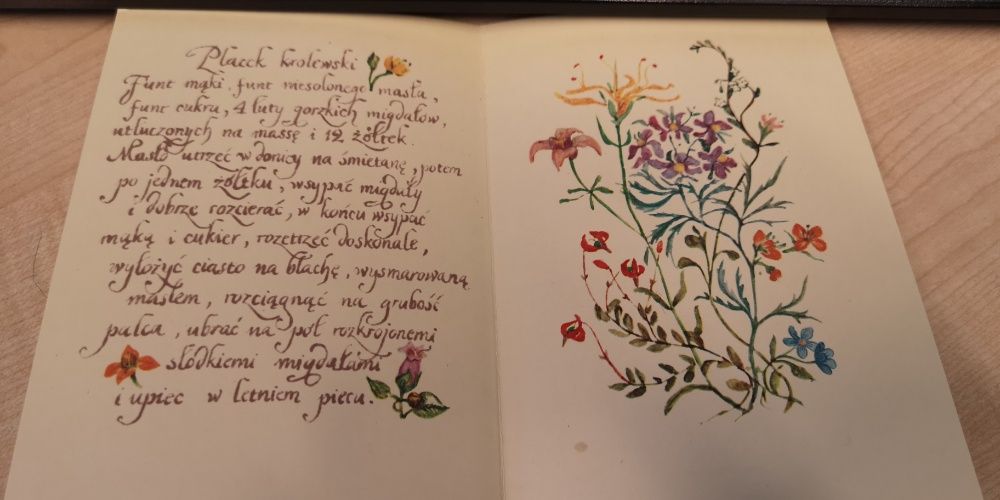 Placek krolewski
Funt mąki, funt niesolonego masła,
funt cukru, 4 łuty gorzkich migdałów,
utłuczonych na massę i 12 żółtek.
Masło utrzeć w donicy na śmietanę, potem
po jednem żółtku, wsypać migdały
i dobrze rozcierać, w końcu wsypać
mąką i cukier, rozetrzeć doskonale,
wyłożyć ciasto na blachę, wysmarowaną
masłem, rozciągnąć na grubość
palca, ubrać na pół rozkrojonemi
słodkiemi migdałami
i upiec w letniem piecu.